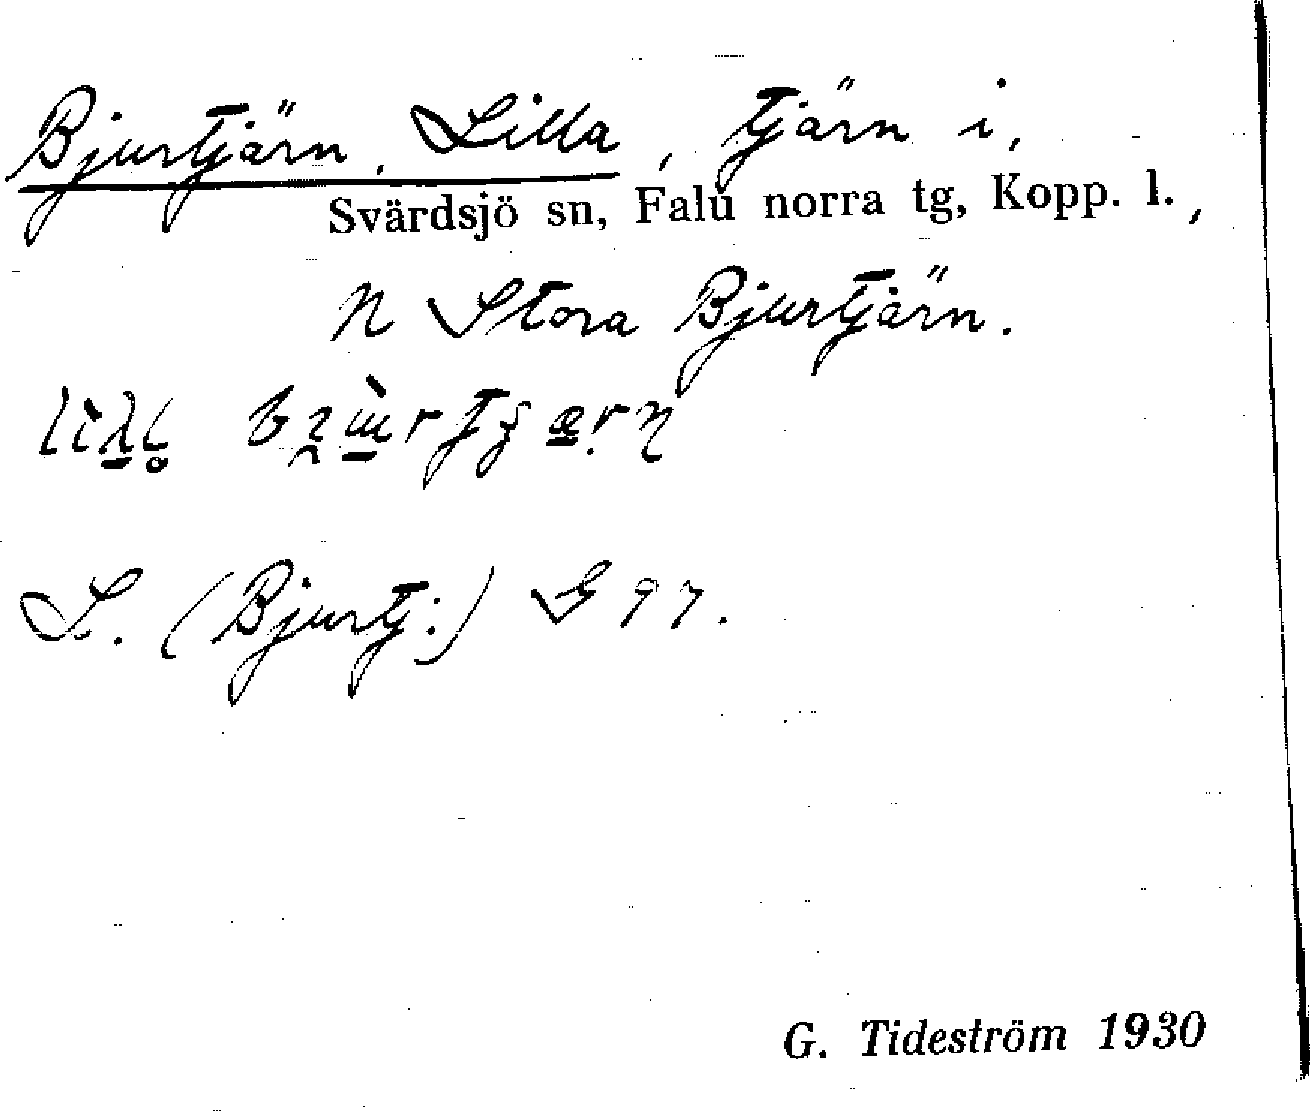 Bjurtjärn, Lilla, tjärn i,
Svärdsjö sn, Falu norra tg, Kopp. l.,
N Stora Bjurtjärn.
L. (Bjurtj:) G 97.
G. Tideström 1930